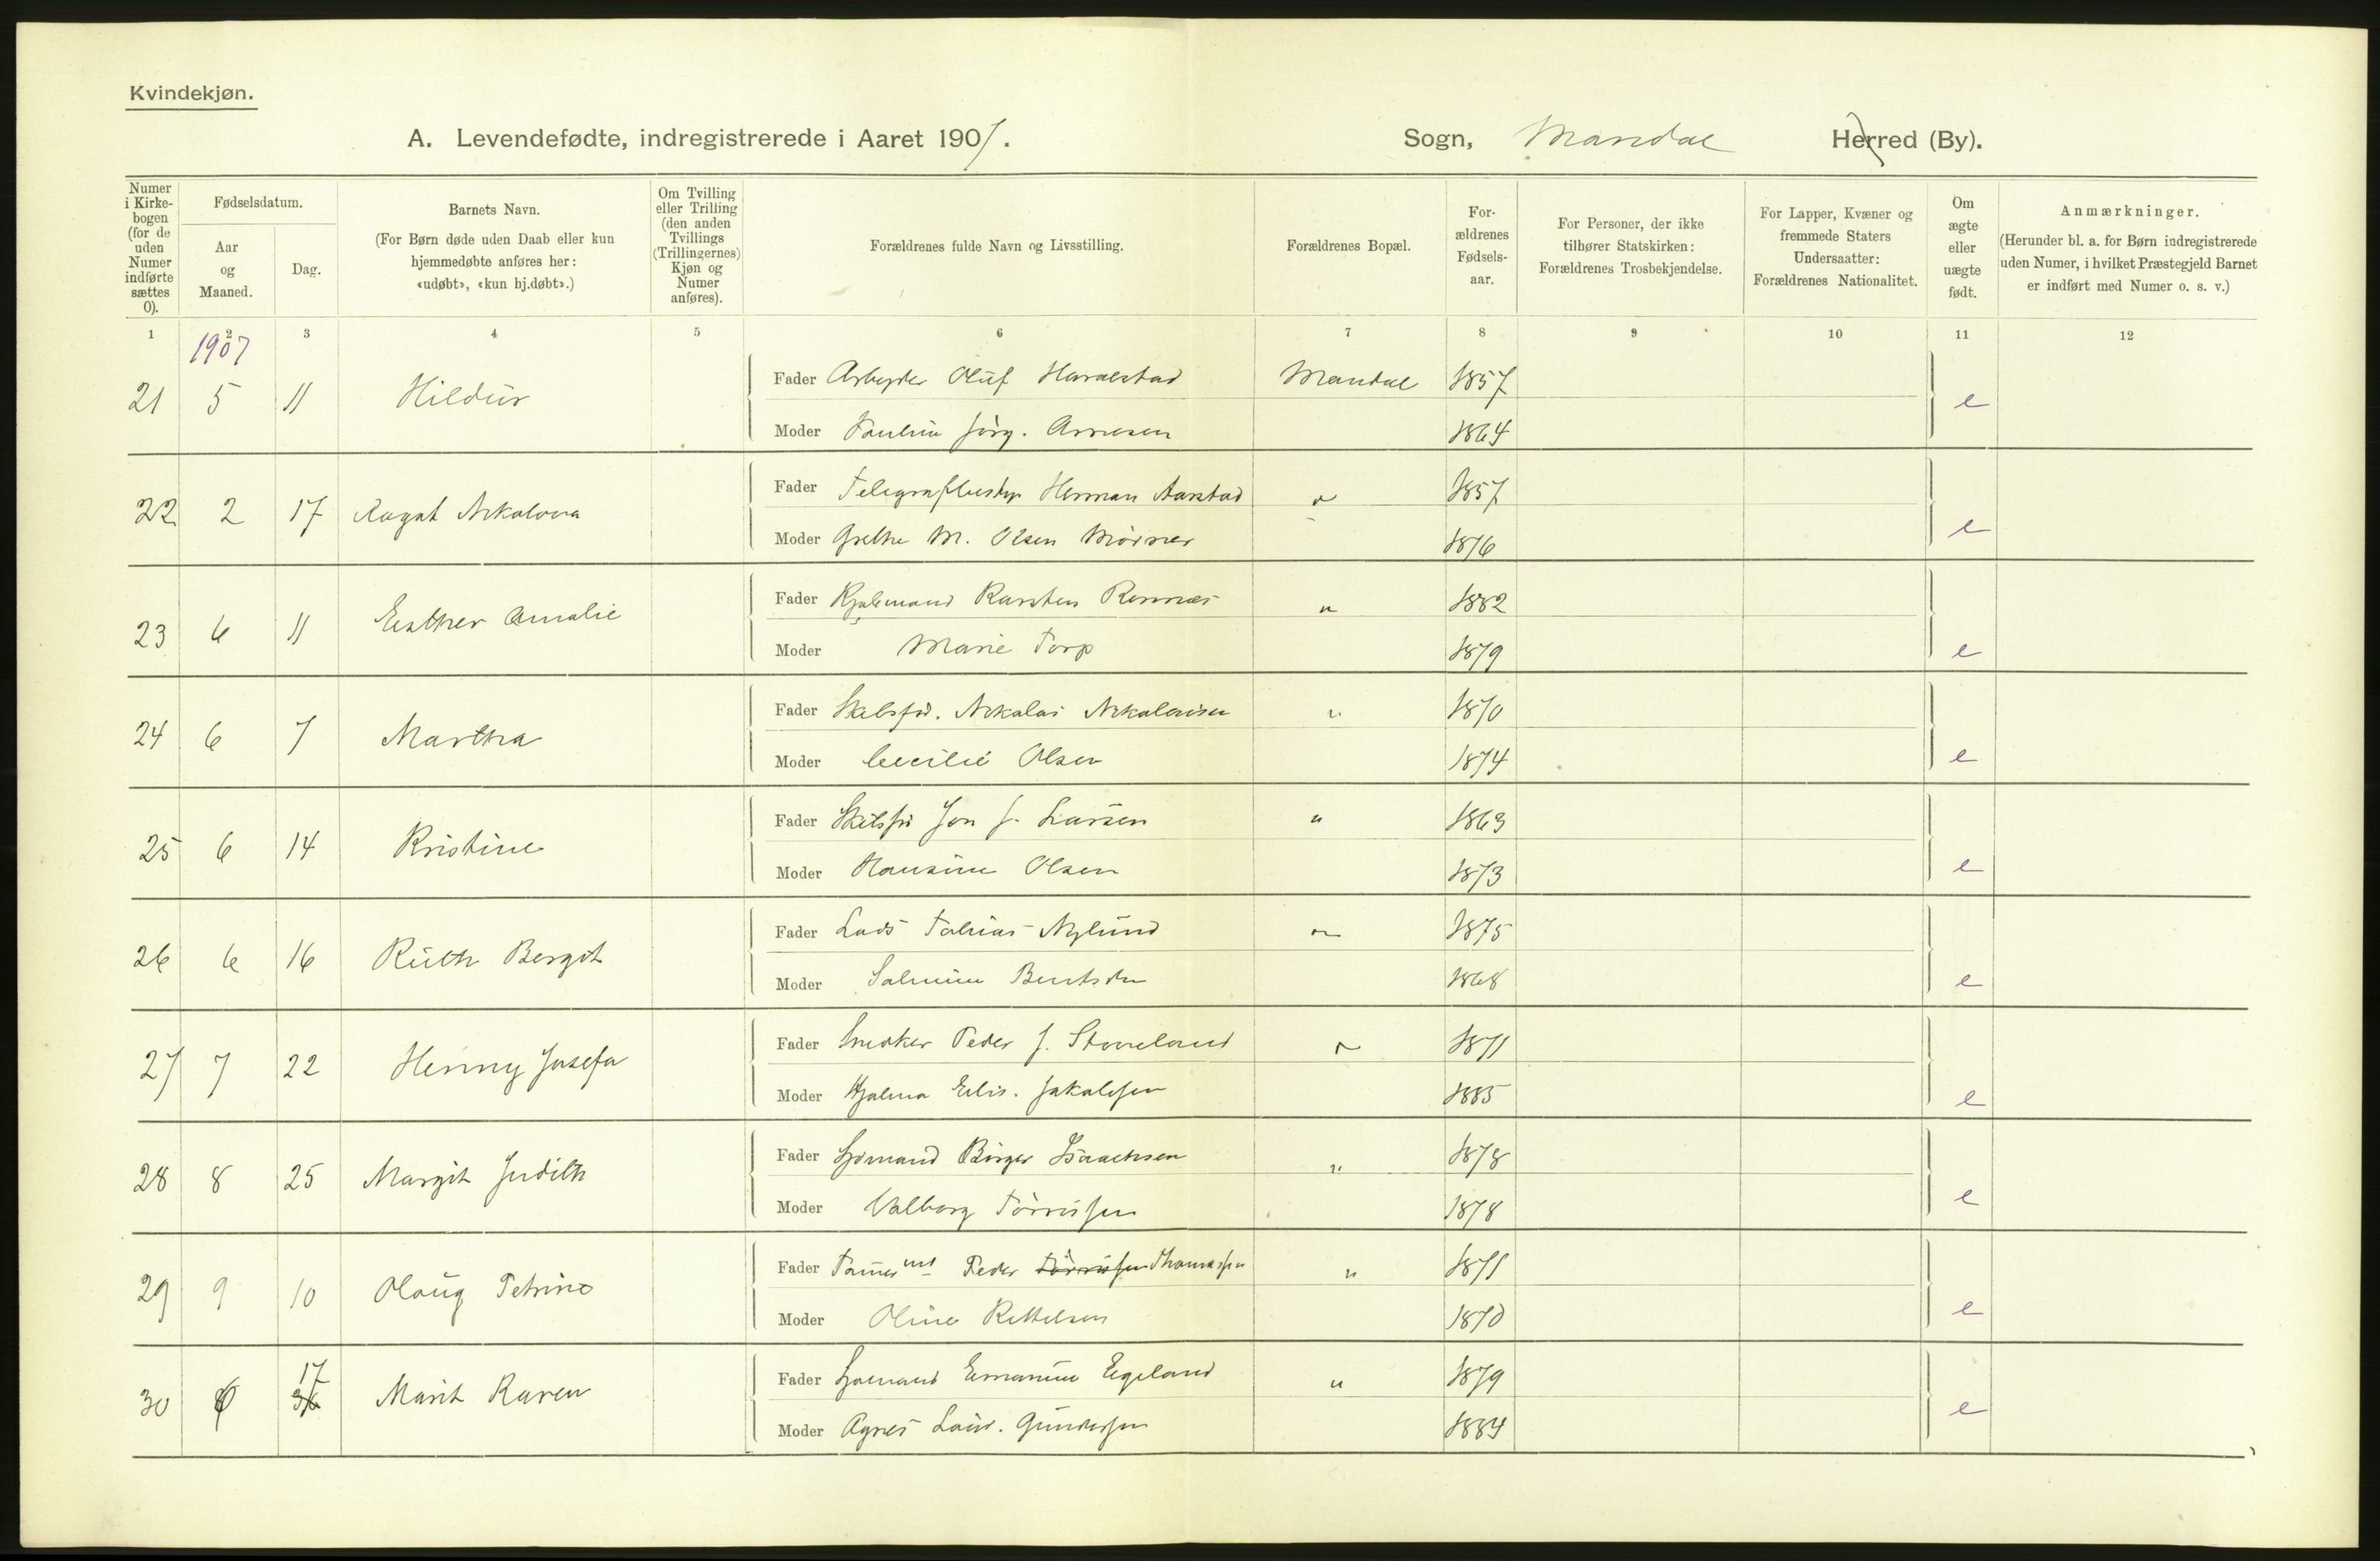 Kvindekjøn.
A. Levendefødte, indregistrerede i Aaret 1907. Sogn, Mandal Herred (By).
Numer i Kirkebogen (for de uden Numer indførte sættes 0).
Fødselsdatum.
Aar og Maaned.
Dag.
Barnets Navn.
(For Børn døde uden Daab eller kun hjemmedøbte anføres her: «udøbt», «kun hj.døbt».)
Om Tvilling eller Trilling (den anden Tvillings (Trillingernes) Kjøn og Numer anføres).
Forældrenes fulde Navn og Livsstilling.
Forældrenes Bopæl.
For-ældrenes Fødsels-aar.
For Personer, der ikke tilhører Statskirken: Forældrenes Trosbekjendelse.
For Lapper, Kvæner og fremmede Staters Undersaatter: Forældrenes Nationalitet.
Om ægte eller uægte født.
Anmærkninger.
(Herunder bl. a. for Børn indregistrerede uden Numer, i hvilket Præstegjeld Barnet er indført med Numer o. s. v.)
1 2 3 4 5 6 7 8 9 10 11 12
1907
21 5 11 Hildur Fader Arbeyder Oluf Haraldstad Mandal 1857 e
Moder Pauline Jørg. Arnesen 1864
22 2 17 Ragat Nikolova Fader Telegrafbesty Herman Aarstad " 1857 e
Moder Grethe M. Olsen 1876
23 6 11 Esther Amalie Fader Karsten " 1882 e
Moder Marie Torp 1879
24 6 7 Martha Fader Skibsfø. Nikolai Nikolaisen " 1870 e
Moder Cecilie Olsen 1874
25 6 14 Kristine Fader Skibsfø Jon J. Larsen " 1863 e
Moder Hansine Olsen 1873
26 6 16 Ruth Bergit Fader Lods Tobias Nylund " 1875 e
Moder Salmine Bentsen 1868
27 7 22 Henny Josefa Fader Snedker Peder J. Stoveland " 1871 e
Moder Hjalma Elis. Jakobsen 1885
28 8 25 Margit Judith Fader Sjømand Birger Isaachsen " 1878 e
Moder Valborg Tørrissen 1878
29 9 10 Olaug Petrine Fader Tømmermd Peder Tørrissen Thomassen " 1871 e
Moder Oline Kettelsen 1870
30 17 Marit Raven Fader Sjømand Emanuel Egeland " 1879 e
Moder Agnes Laur. Gundersen 1884